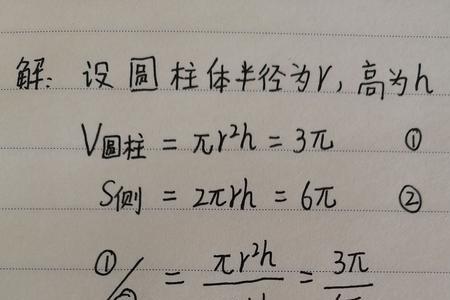 解: 设圆柱体半径为r, 高为h
V圆柱 = πr²h = 3π ①
S侧 = 2πrh = 6π ②
①/② = πr²h / = 3π /